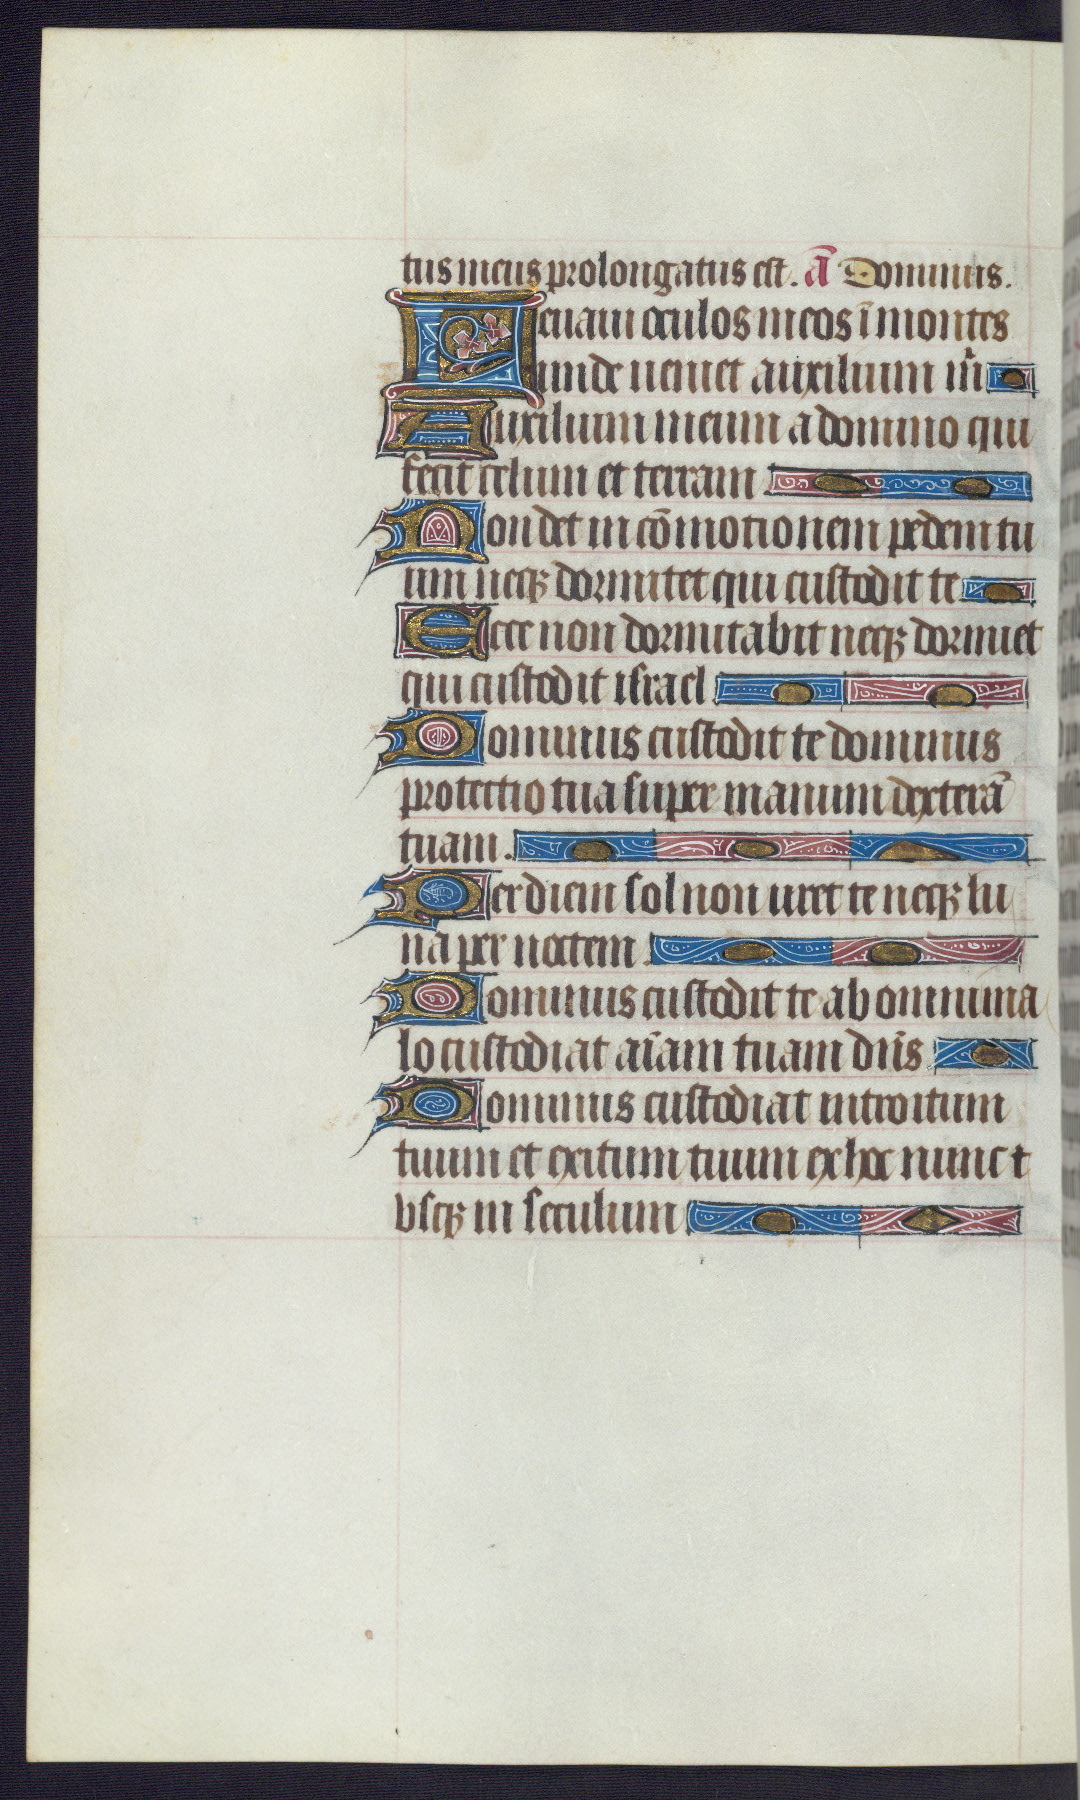 tus meus prolongatus est. añ Dominus.
Leuaui oculos meos ī montes
unde ueniet auxilium m̃
Auxilium meum a domino qui
fecit celum et terram
Non det in cōmotionem pedem tu
um neqꝫ dormitet qui custodit te
Ecce non dormitabit neqꝫ dormiet
qui custodit israel
Dominus custodit te dominus
protectio tua super manum dexterā
tuam.
Per diem sol non uret te neqꝫ lu
na per noctem
Dominus custodit te ab omni ma
lo custodiat aīam tuam dn̄s
Dominus custodiat introitum
tuum et exitum tuum ex hoc nunc ⁊
vsqꝫ in seculum